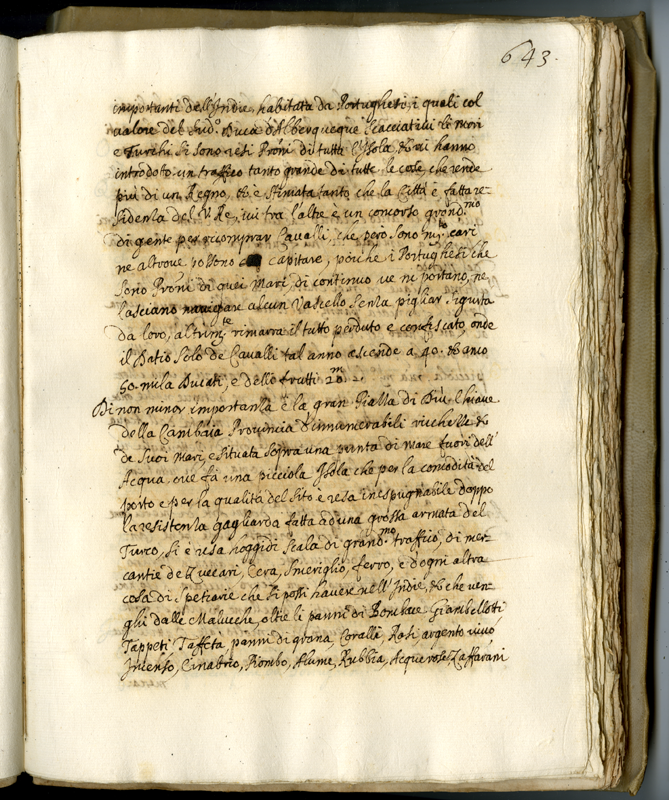 643.
importanti dell'Indie, habitata da Portughesi, i quali col
valore del sud.o Duca d'Alberqueque scacciativi li Mori
e Turchi si sono resi Proni di tutta l'Isola, et vi hanno
introdoto un traffico tanto grande di tutte le cose, che rende
più di un Regno, et è stimata tanto che la Città è fatta re-
sidenza del V. Re, ivi tra l'altre è un concorso grand.mo
di gente per ricomprar Cavalli, che però sono m.to cari
ne altrove possono capitare, poiche i Portughesi che
sono Proni di quei Mari, di continuo ve ni portano, ne
lasciano navigare alcun Vascello senza pigliar sigurtà
da loro, altrim.te rimarrà il tutto perduto e confiscato, onde
il Datio solo de Cavalli tal anno ascende a 40. et anco
50. mila Ducati, e dello frutti 20.m
Di non minor importanza è la gran Piazza di Diù, Chiave
della Cambaia Provincia d'innumerabili ricchezze et
de suoi Mari, e situata sopra una punta di mare fuori dell'
Acqua, ove fà una picciola Isola che per la comodità del
porto e per la qualità del sito è resa inespugnabile doppo
la resistenza gagliarda fatta ad una grossa armata del
Turco, si è resa hoggidì scala di grand.mo traffico, di mer-
cantie de Zuccari, Cera, Smeriglio, ferro, e d'ogni altra
cosa di Spetiarie che si possi havere nell'Indie, et che ven-
ghi dalle Maluche, oltre li panni di Bombace Giambellotti
Tappeti Taffetà, panni di grana, Coralli Rosi, argento vivo
Incenso, Cinabrio, Piombo, Alume, Rubbia, Acque rose, Zaffarani